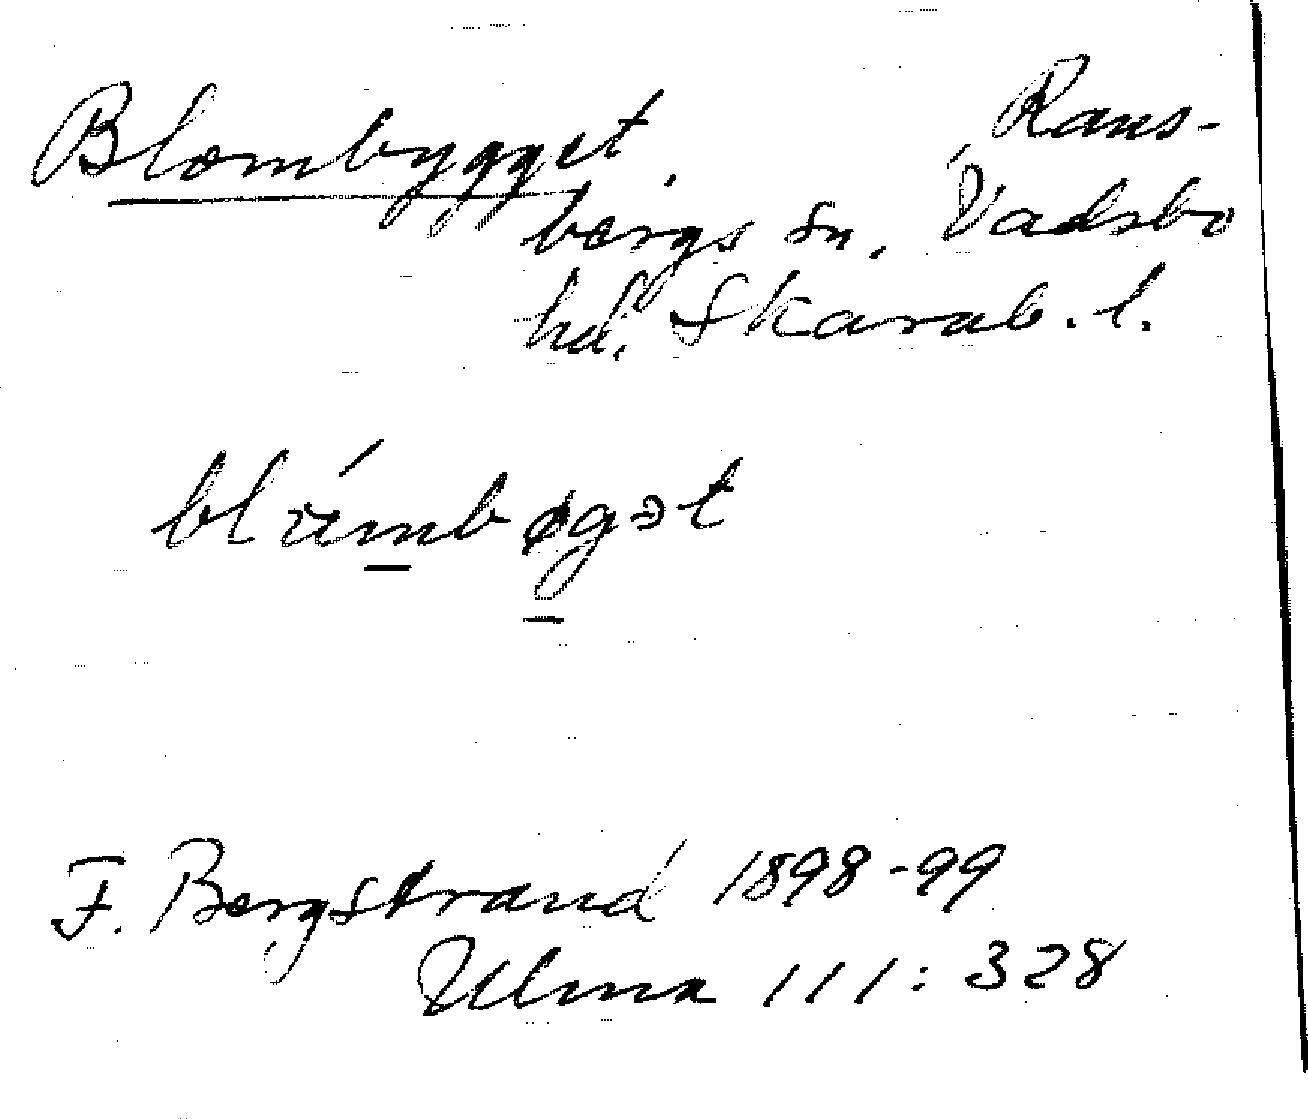 Blombygget. Rans-
bergs sn. Vadsbo
hd. Skarab. l.
blúmbøgət
F. Bergstrand 1898-99
Ulma 111: 328